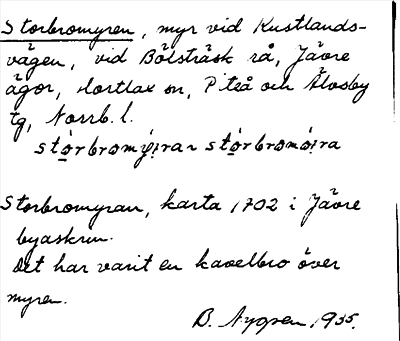 Storbromyren, myr vid Kustlands-
vägen, vid Bölsträsk rå, Jävre
ägor, Hortlax sn, Piteå och Älvsby
tg, Norrb. l.
Storbromyran, karta 1702 i Jävre
byaskrin.
Det har varit en kavelbro över
myren.
B. Nygren, 1935.